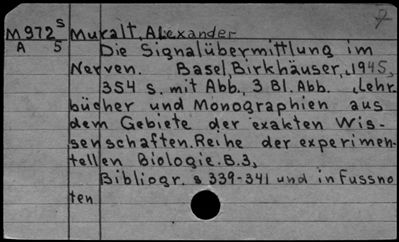 7
M972 S Muralt, Alexander
A 5 Die Signalübermittlung im
Nerven. Basel, Birkhäuser, 1945,
354 s. mit Abb., 3 Bl. Abb. (Lehr
bücher und Monographien aus
dem Gebiete der exakten Wis-
senschaften. Reihe der experimen-
tellen Biologie. B.3,
Bibliogr. s 339-341 und in Fussno
ten